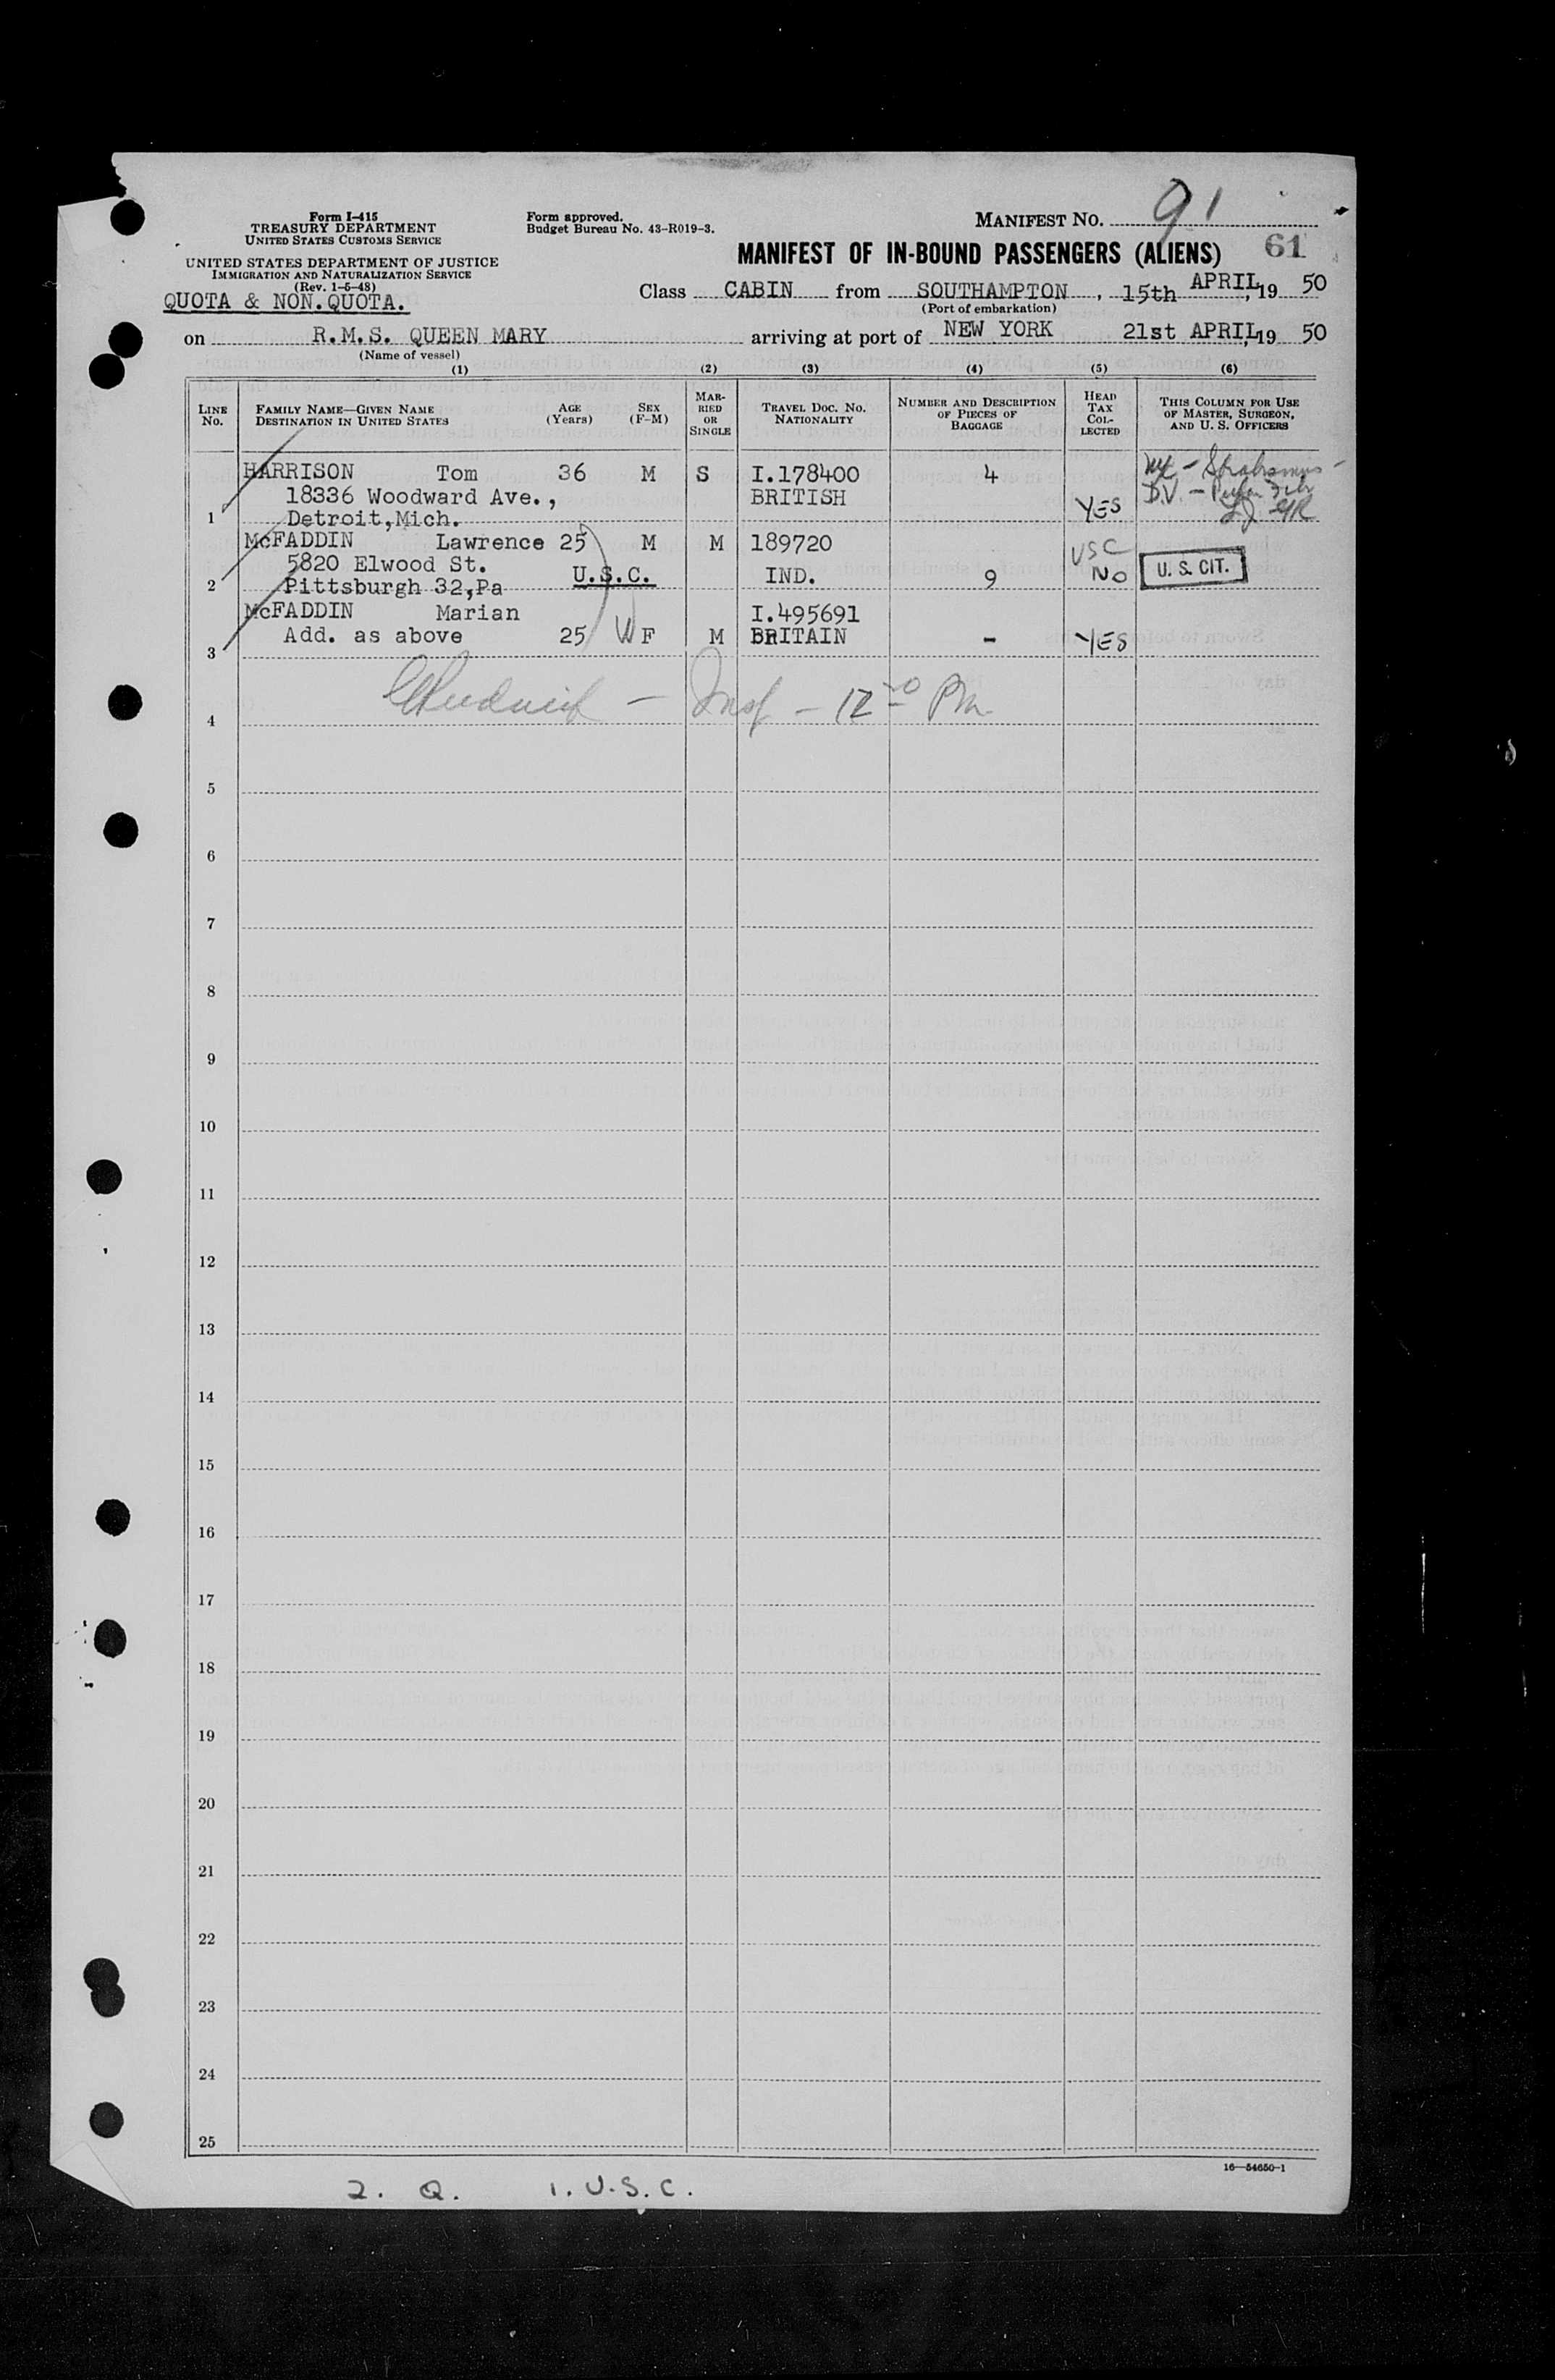 Form I-415
TREASURY DEPARTMENT
UNITED STATES CUSTOMS SERVICE
UNITED STATES DEPARTMENT OF JUSTICE
IMMIGRATION AND NATURALIZATION SERVICE
(Rev. 1-5-48)
QUOTA & NON.QUOTA.
Form approved.
Budget Bureau No. 43-R019-3.
MANIFEST NO. 91
MANIFEST OF IN-BOUND PASSENGERS (ALIENS) 61
Class CABIN from SOUTHAMPTON, 15th APRIL, 19 50
(Port of embarkation)
on R.M.S. QUEEN MARY arriving at port of NEW YORK 21st APRIL, 19 50
(Name of vessel)
(1) (2) (3) (4) (5) (6)
LINE NO.
FAMILY NAME—GIVEN NAME
DESTINATION IN UNITED STATES
AGE (Years)
SEX (F-M)
MARRIED OR SINGLE
TRAVEL DOC. NO.
NATIONALITY
NUMBER AND DESCRIPTION OF PIECES OF BAGGAGE
HEAD TAX COLLECTED
THIS COLUMN FOR USE OF MASTER, SURGEON, AND U. S. OFFICERS
HARRISON Tom 36 M S I.178400 4
18336 Woodward Ave., BRITISH YES D.V. -
1 Detroit,Mich.
McFADDIN Lawrence 25 M M 189720 USC
5820 Elwood St. U.S.C. IND. 9 NO U. S. CIT.
2 Pittsburgh 32,Pa
McFADDIN Marian I.495691
Add. as above 25 W F M BRITAIN - YES
3
4 - Insp - 12 00 Pm
5
6
7
8
9
10
11
12
13
14
15
16
17
18
19
20
21
22
23
24
25
16—54650-1
2. Q. 1. U.S.C.